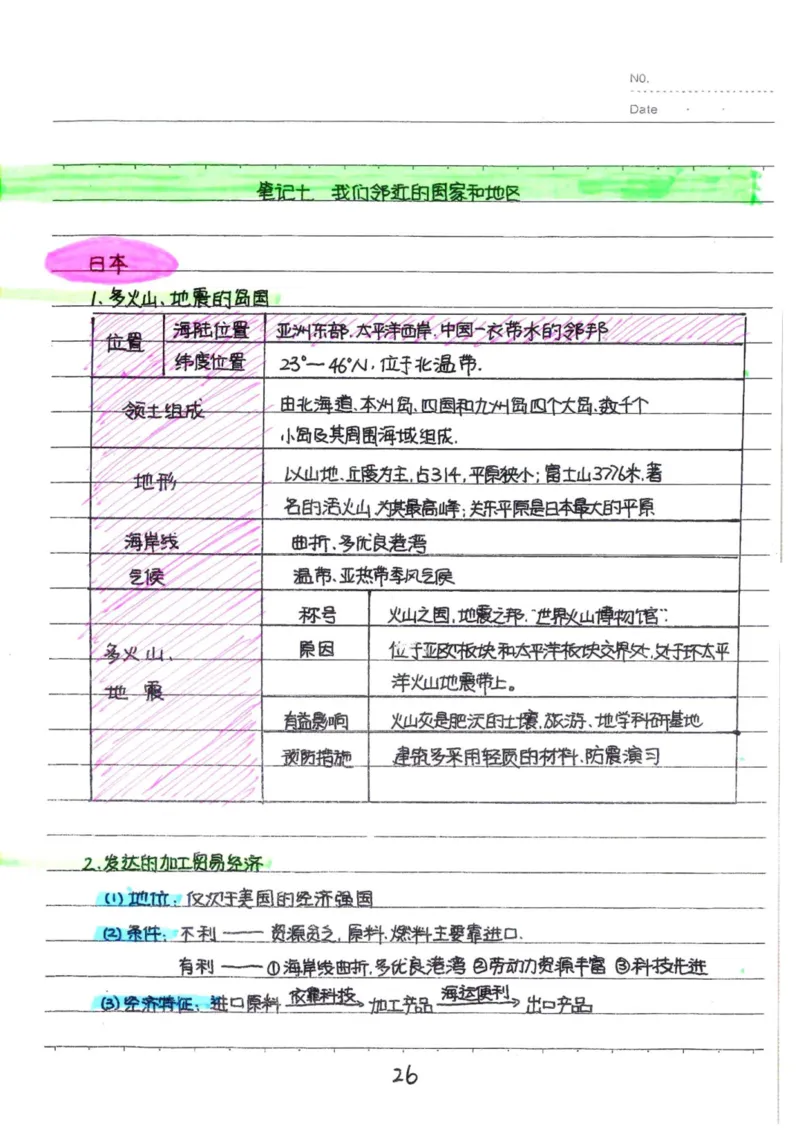 NO.
Date
笔记十 我们邻近的国家和地区
日本
1.多火山、地震的岛国
位置 海陆位置 亚洲东部、太平洋西岸、中国一衣带水的邻邦
纬度位置 23°—46°N,位于北温带.
领土组成 由北海道、本州岛、四国和九州岛四个大岛、数千个
小岛及其周围海域组成.
地形 以山地、丘陵为主,占3/4,平原狭小;富士山3776米,著
名的活火山,为其最高峰;关东平原是日本最大的平原
海岸线 曲折、多优良港湾
气候 温带、亚热带季风气候
多火山、地震 称号 火山之国,地震之邦.“世界火山博物馆”.
原因 位于亚欧板块和太平洋板块交界处,处于环太平
洋火山地震带上。
有益影响 火山灰是肥沃的土壤,旅游、地学科研基地
预防措施 建筑多采用轻质的材料、防震演习
2.发达的加工贸易经济
(1)地位:仅次于美国的经济强国
(2)条件:不利——资源贫乏,原料、燃料主要靠进口.
有利——①海岸线曲折,多优良港湾 ②劳动力资源丰富 ③科技先进
(3)经济特征:进口原料 依靠科技→ 加工产品 海运便利→ 出口产品
26